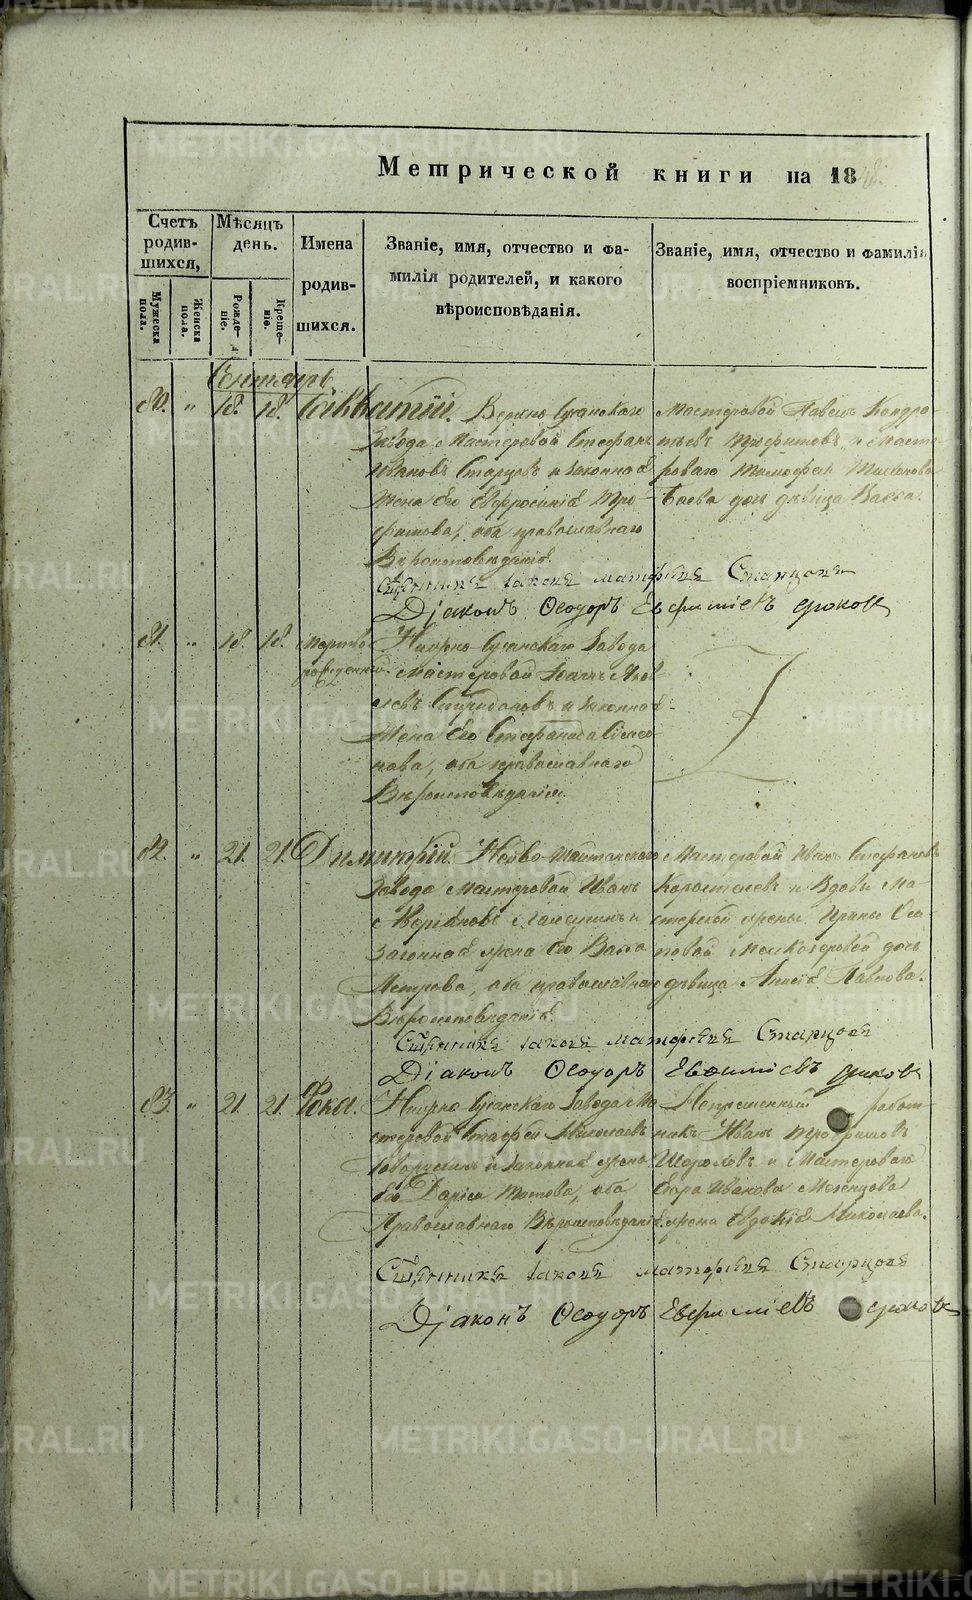 METRIKI.GASO-URAL.RU
Метрической книги на 18
Счетъ родив-шихся,
Мужеска пола.
Женска пола.
Мѣсяцъ день.
Рожде-ніе.
Креще-нію.
Имена родив-шихся.
Званіе, имя, отчество и фа-
милія родителей, и какого
вѣроисповѣданія.
Званіе, имя, отчество и фамилія
воспріемниковъ.
Сентябрь
80. " 18. 18. Савватій. Верхно Сусанскаго
завода Мастеровой Стефанъ
Ивановъ Старцовъ и законная
жена его Евфросинія Тро-
фимова, оба православнаго
Вѣроисповѣданія.
Мастеровой Павелъ Кондра-
тьевъ Трофимовъ и Масте-
роваго Тимофея
дочь дѣвица Васса.
Священникъ Іаковъ Старцовъ
Діаконъ Ѳеодоръ Евфиміевъ
81. " 18. 18. Мертво-
рожденный.
Нижно Сусанскаго Завода
мастеровой Іоаннъ Яков-
левъ Спиридоновъ и законная
жена его Стефанида Симео-
нова, оба православнаго
Вѣроисповѣданія.
82. " 21. 21. Димитрій. Нейво Шайтанскаго
Завода Мастеровой Иванъ
и
Законная жена его Васса
Петрова, оба православнаго
Вѣроисповѣданія.
Мастеровой Иванъ Стефановъ
Коростелевъ и Вдовы Ма-
стерской жены Ирины Оси-
повой дочь
дѣвица Анисія Павлова.
Священникъ Іаковъ Старцовъ
Діаконъ Ѳеодоръ Евѳиміевъ
83. " 21. 21. Фока. Нижно Сусанскаго Завода Ма-
стеровой Николаевъ
и законная жена
его Дарья Титова, оба
Православнаго Вѣроисповѣданія.
Непременный работ-
никъ Иванъ Трофимовъ
и Мастероваго
Ивановa
жена Евдокія Николаева.
Священникъ Іаковъ Старцовъ
Діаконъ Ѳеодоръ Евфиміевъ